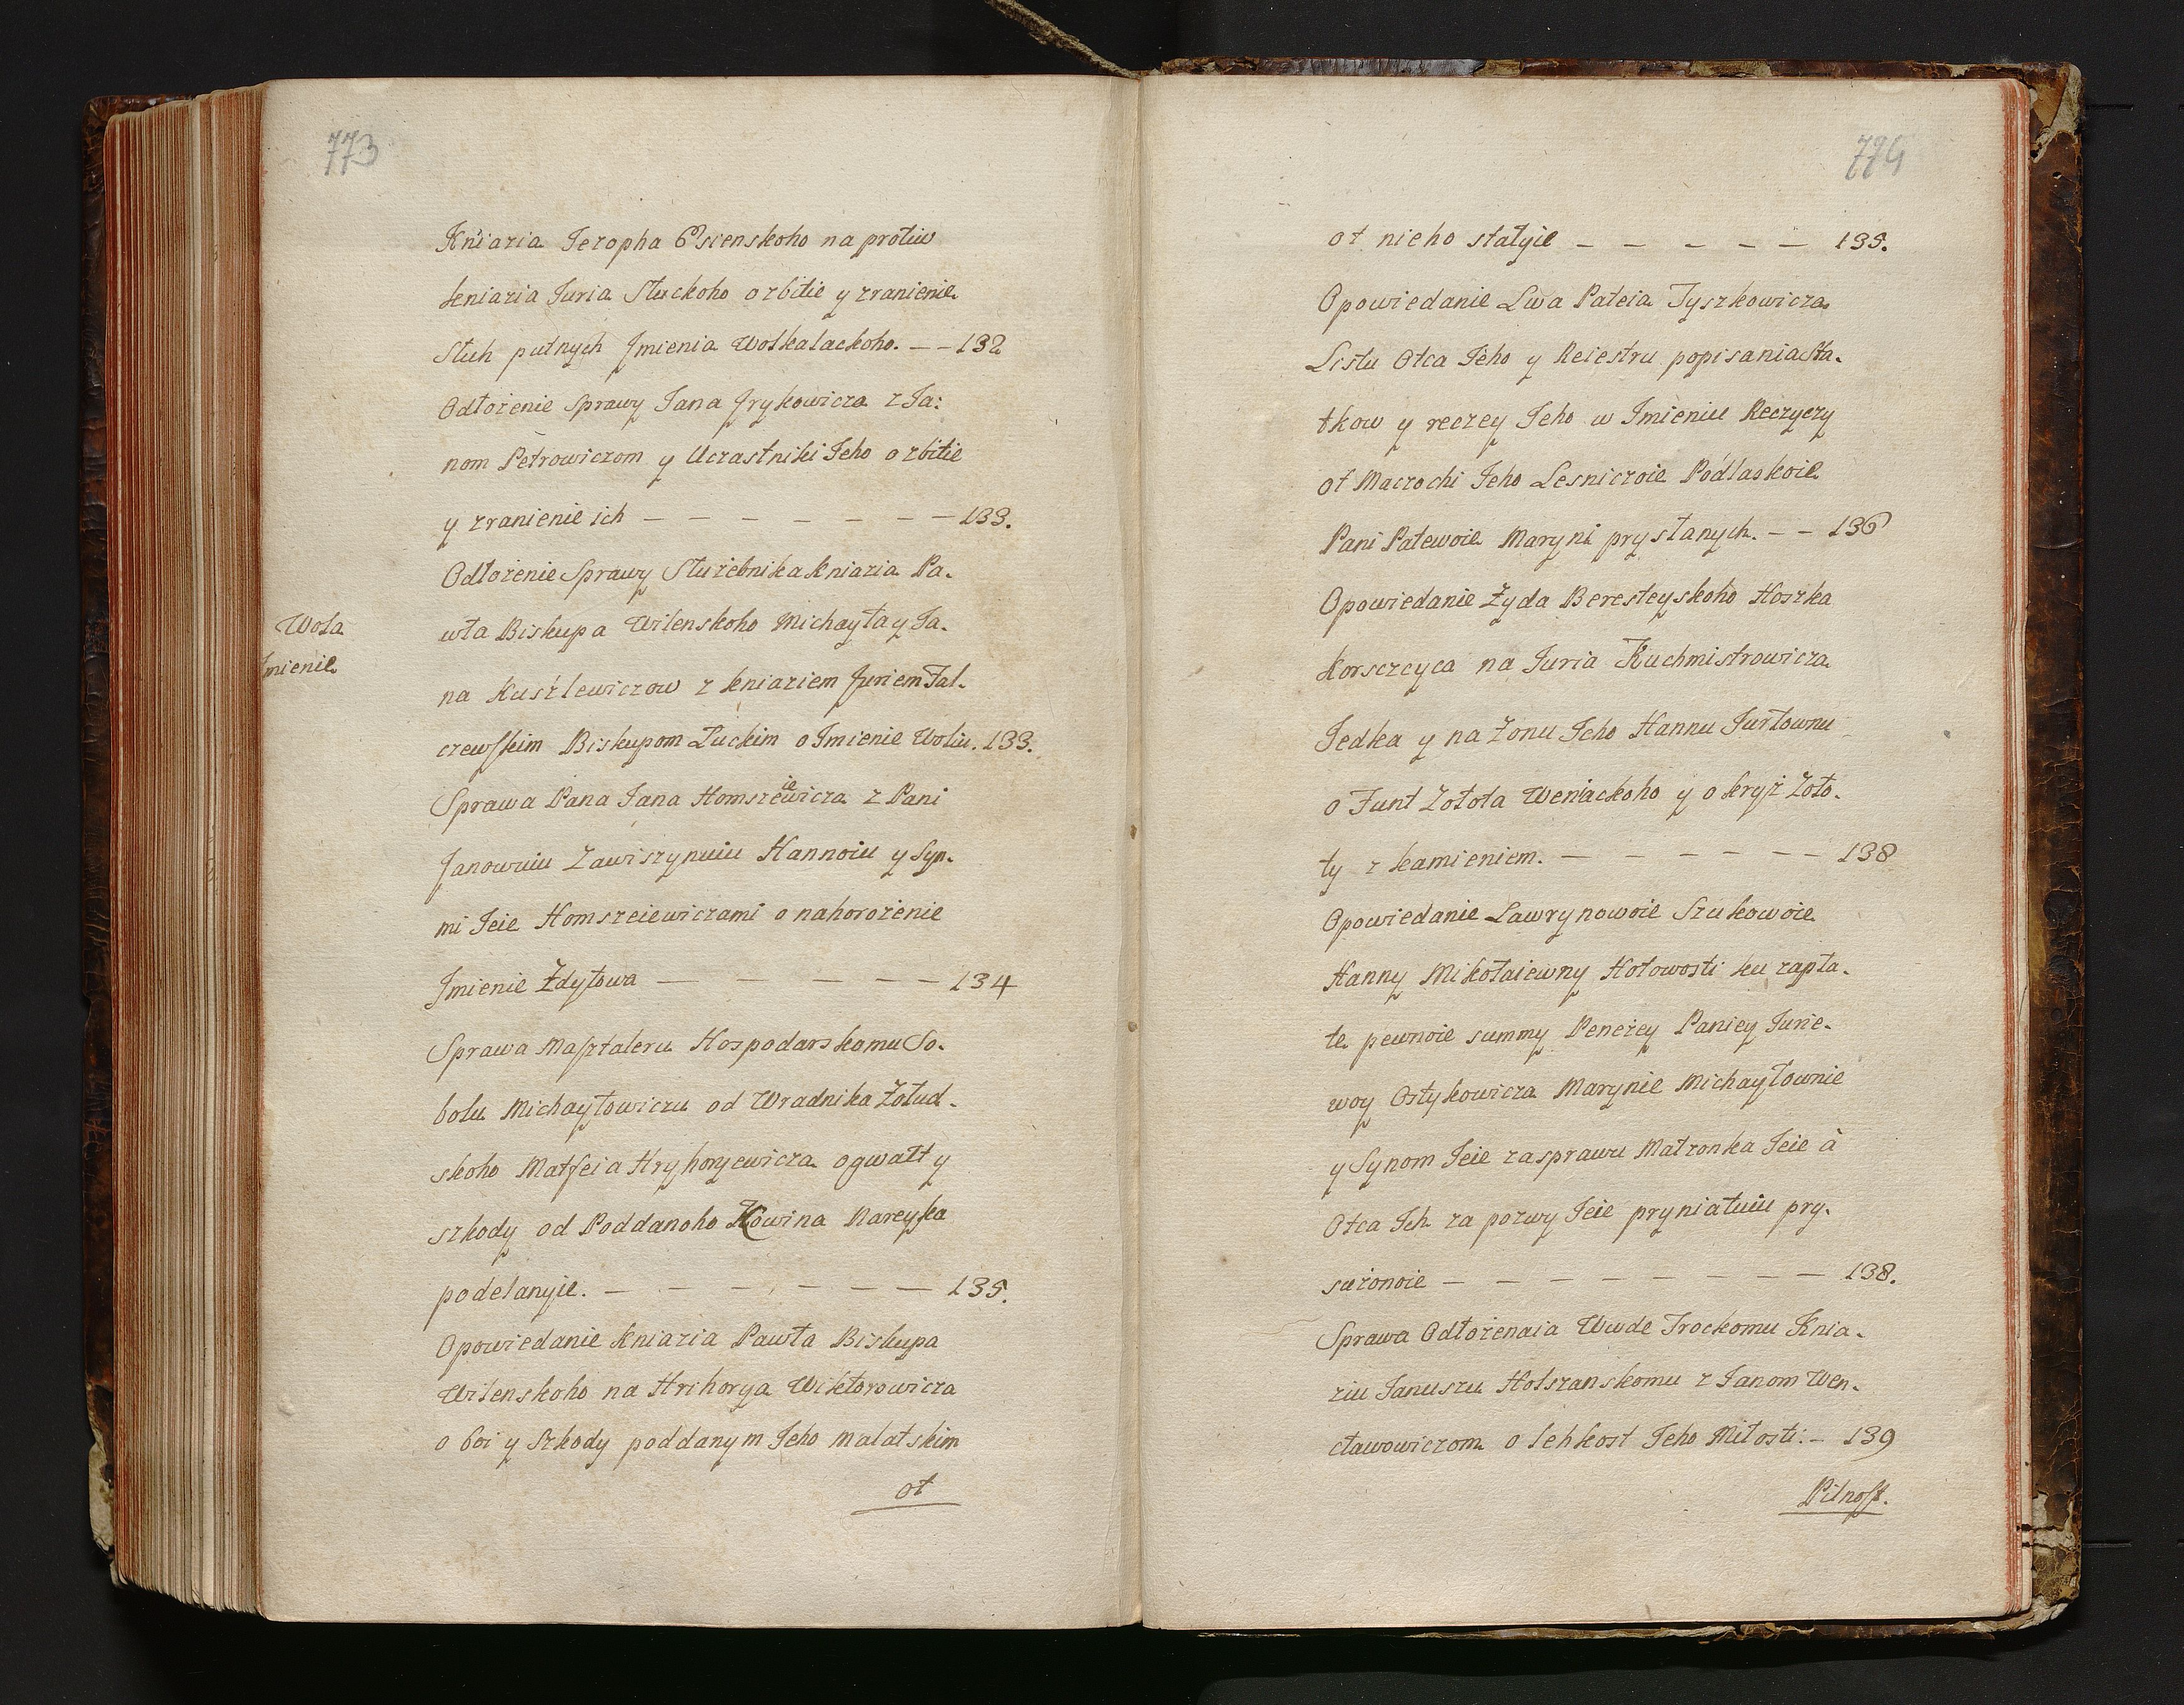 773
Kniazia Jeropha Osienskoho na protiw
kniazia Juria Słuckoho o zbitie y zranienie
Słuh putnych Jmienia Wołkałackoho. — — 132
Odłożenie Sprawy Jana Jrykowicza z Ja:
nom Petrowiczom y Uczastniki Jeho o zbitie
y zranienie ich — — — — — — — 133.
Odłożenie Sprawy Służebnika kniazia Pa-
Woła
Jmienie
wła Biskupa Wilenskoho Michayła y Ja-
na Kuszlewiczow z kniaziem Juriem Fal-
czewskim Biskupom Łuckim o Jmienie Woliu. 133.
Sprawa Pana Jana Homszeiewicza z Pani
Janowuiu Zawiszynuiu Hannoiu y Syn-
mi Jeie Homszeiewiczami o nahorożenie
Jmienie Żdytowa — — — — — 134
Sprawa Masztaleru Hospodarskomu So-
bolu Michayłowiczu od Wradnika Żołud-
skoho Matfeia Hryhoryewicza o gwałt y
szkody od Poddanoho Kowina Nareyka
podelanyie. — — — — — — 135.
Opowiedanie kniazia Pawła Biskupa
Wilenskoho na Hrihorya Wiktorowicza
o boi y Szkody poddanym Jeho malatskim
ot
774
ot nieho stałyie — — — — — 135.
Opowiedanie Lwa Pateia Tyszkowicza
Listu Otca Jeho y Reiestru popisania Sta-
tkow y reczey Jeho w Jmieniu Reczyczy
ot Maczochi Jeho Lesniczoie Podlaskoie
Pani Patewoie Maryni prysłanych. — — 136
Opowiedanie Żyda Beresteyskoho Hoszka
Korsczcyca na Juria Kuchmistrowicza
Jedka y na Żonu Jeho Hannu Jurłownu
o Funt Zołota Weniackoho y o kryż Zoło-
ty z kamieniem. — — — — — — 138
Opowiedanie Ławrynowoie Szukowoie
Hanny Mikołaiewny Hotowosti ku zapła-
te pewnoie summy Penezey Paniey Jurie-
woy Ostykowicza Marynie Michayłownie
y Synom Jeie za sprawu Małżonka Jeie à
Otca Jch za pozwy Jeie pryniatuiu pry-
sużonoie — — — — — — — — 138.
Sprawa Odłożenaia Wwde Trockomu Knia-
ziu Januszu Holszanskomu z Janom Wen-
cławowiczom o lehkost Jeho Miłosti. — 139
Pilnost.